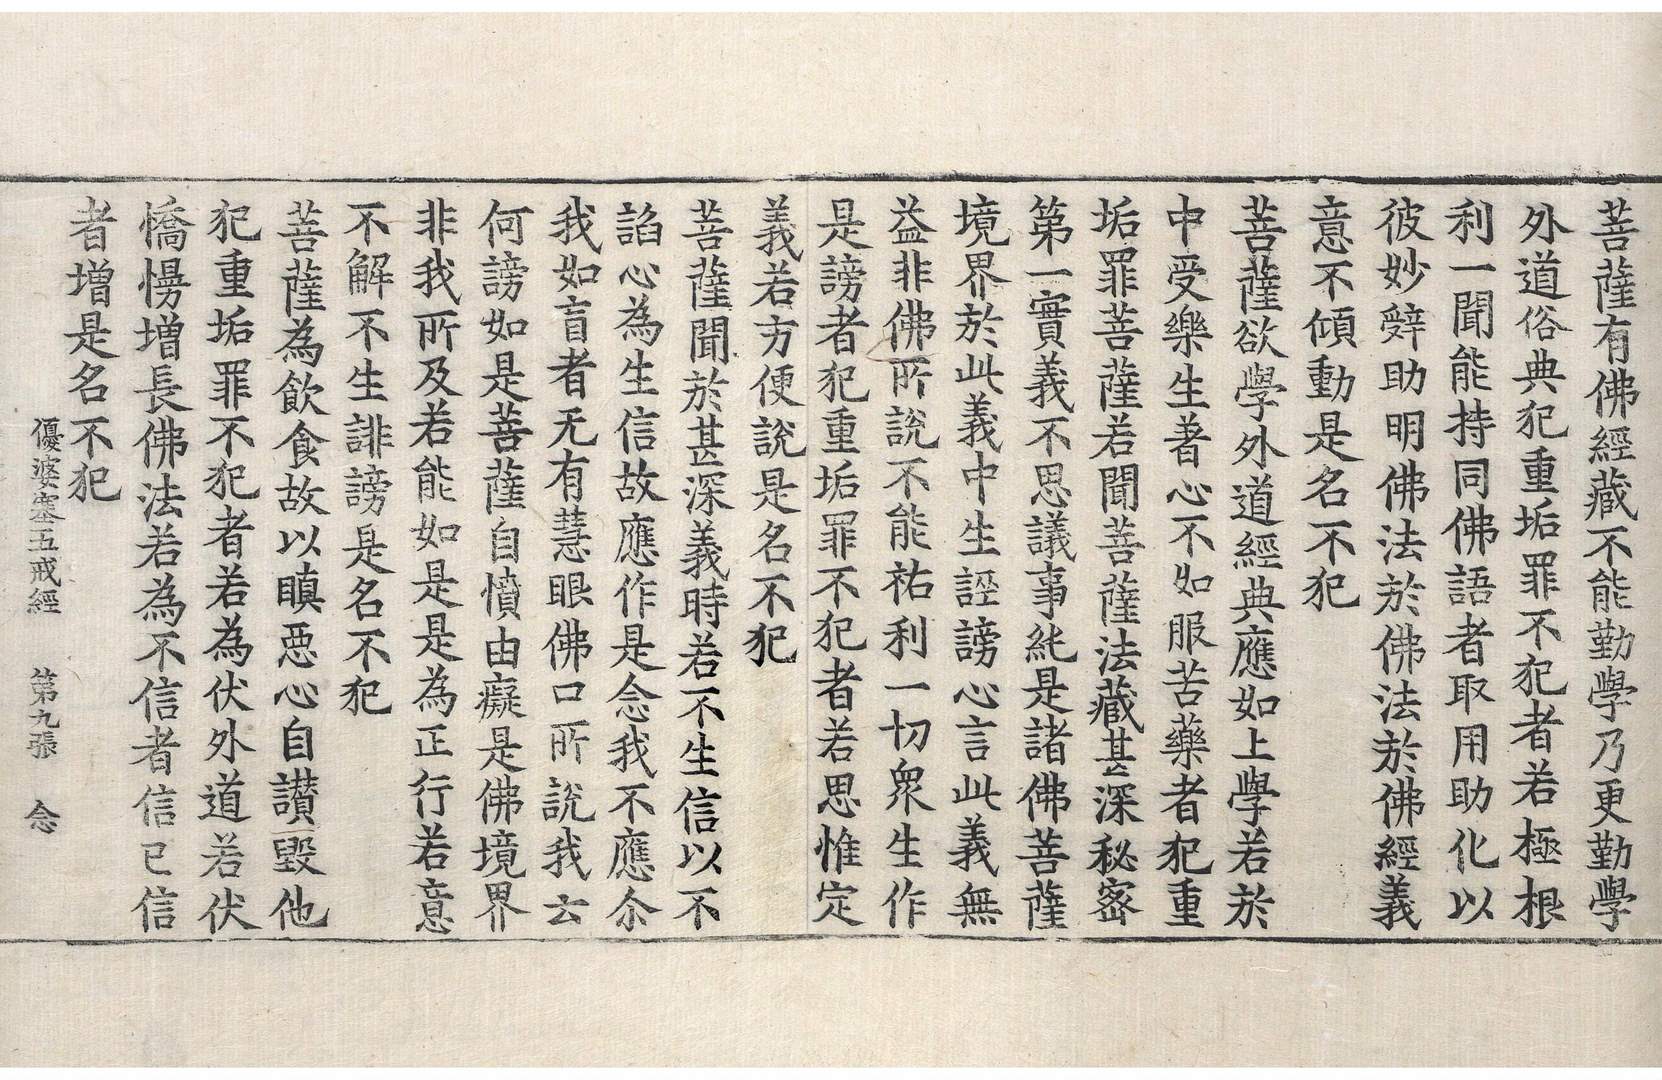 菩薩有佛經藏不能勤學乃更勤學
外道俗典犯重垢罪不犯者若極根
利一聞能持同佛語者取用助化以
彼妙辝助明佛法於佛法於佛經義
意不傾動是名不犯
菩薩欲學外道經典應如上學若於
中受樂生著心不如服苦藥者犯重
垢罪菩薩若聞菩薩法藏甚深秘密
第一實義不思議事純是諸佛菩薩
境界於此義中生誣謗心言此義無
益非佛所說不能祐利一切衆生作
是謗者犯重垢罪不犯者若思惟定
義若方便說是名不犯
菩薩聞於甚深義時若不生信以不
諂心為生信故應作是念我不應尒
我如盲者无有慧眼佛口所說我云
何謗如是菩薩自憤由癡是佛境界
非我所及若能如是是為正行若意
不解不生誹謗是名不犯
菩薩為飲食故以瞋惡心自讃毀他
犯重垢罪不犯者若為伏外道若伏
憍慢增長佛法若為不信者信已信
者增是名不犯
優婆塞五戒經 第九張 念